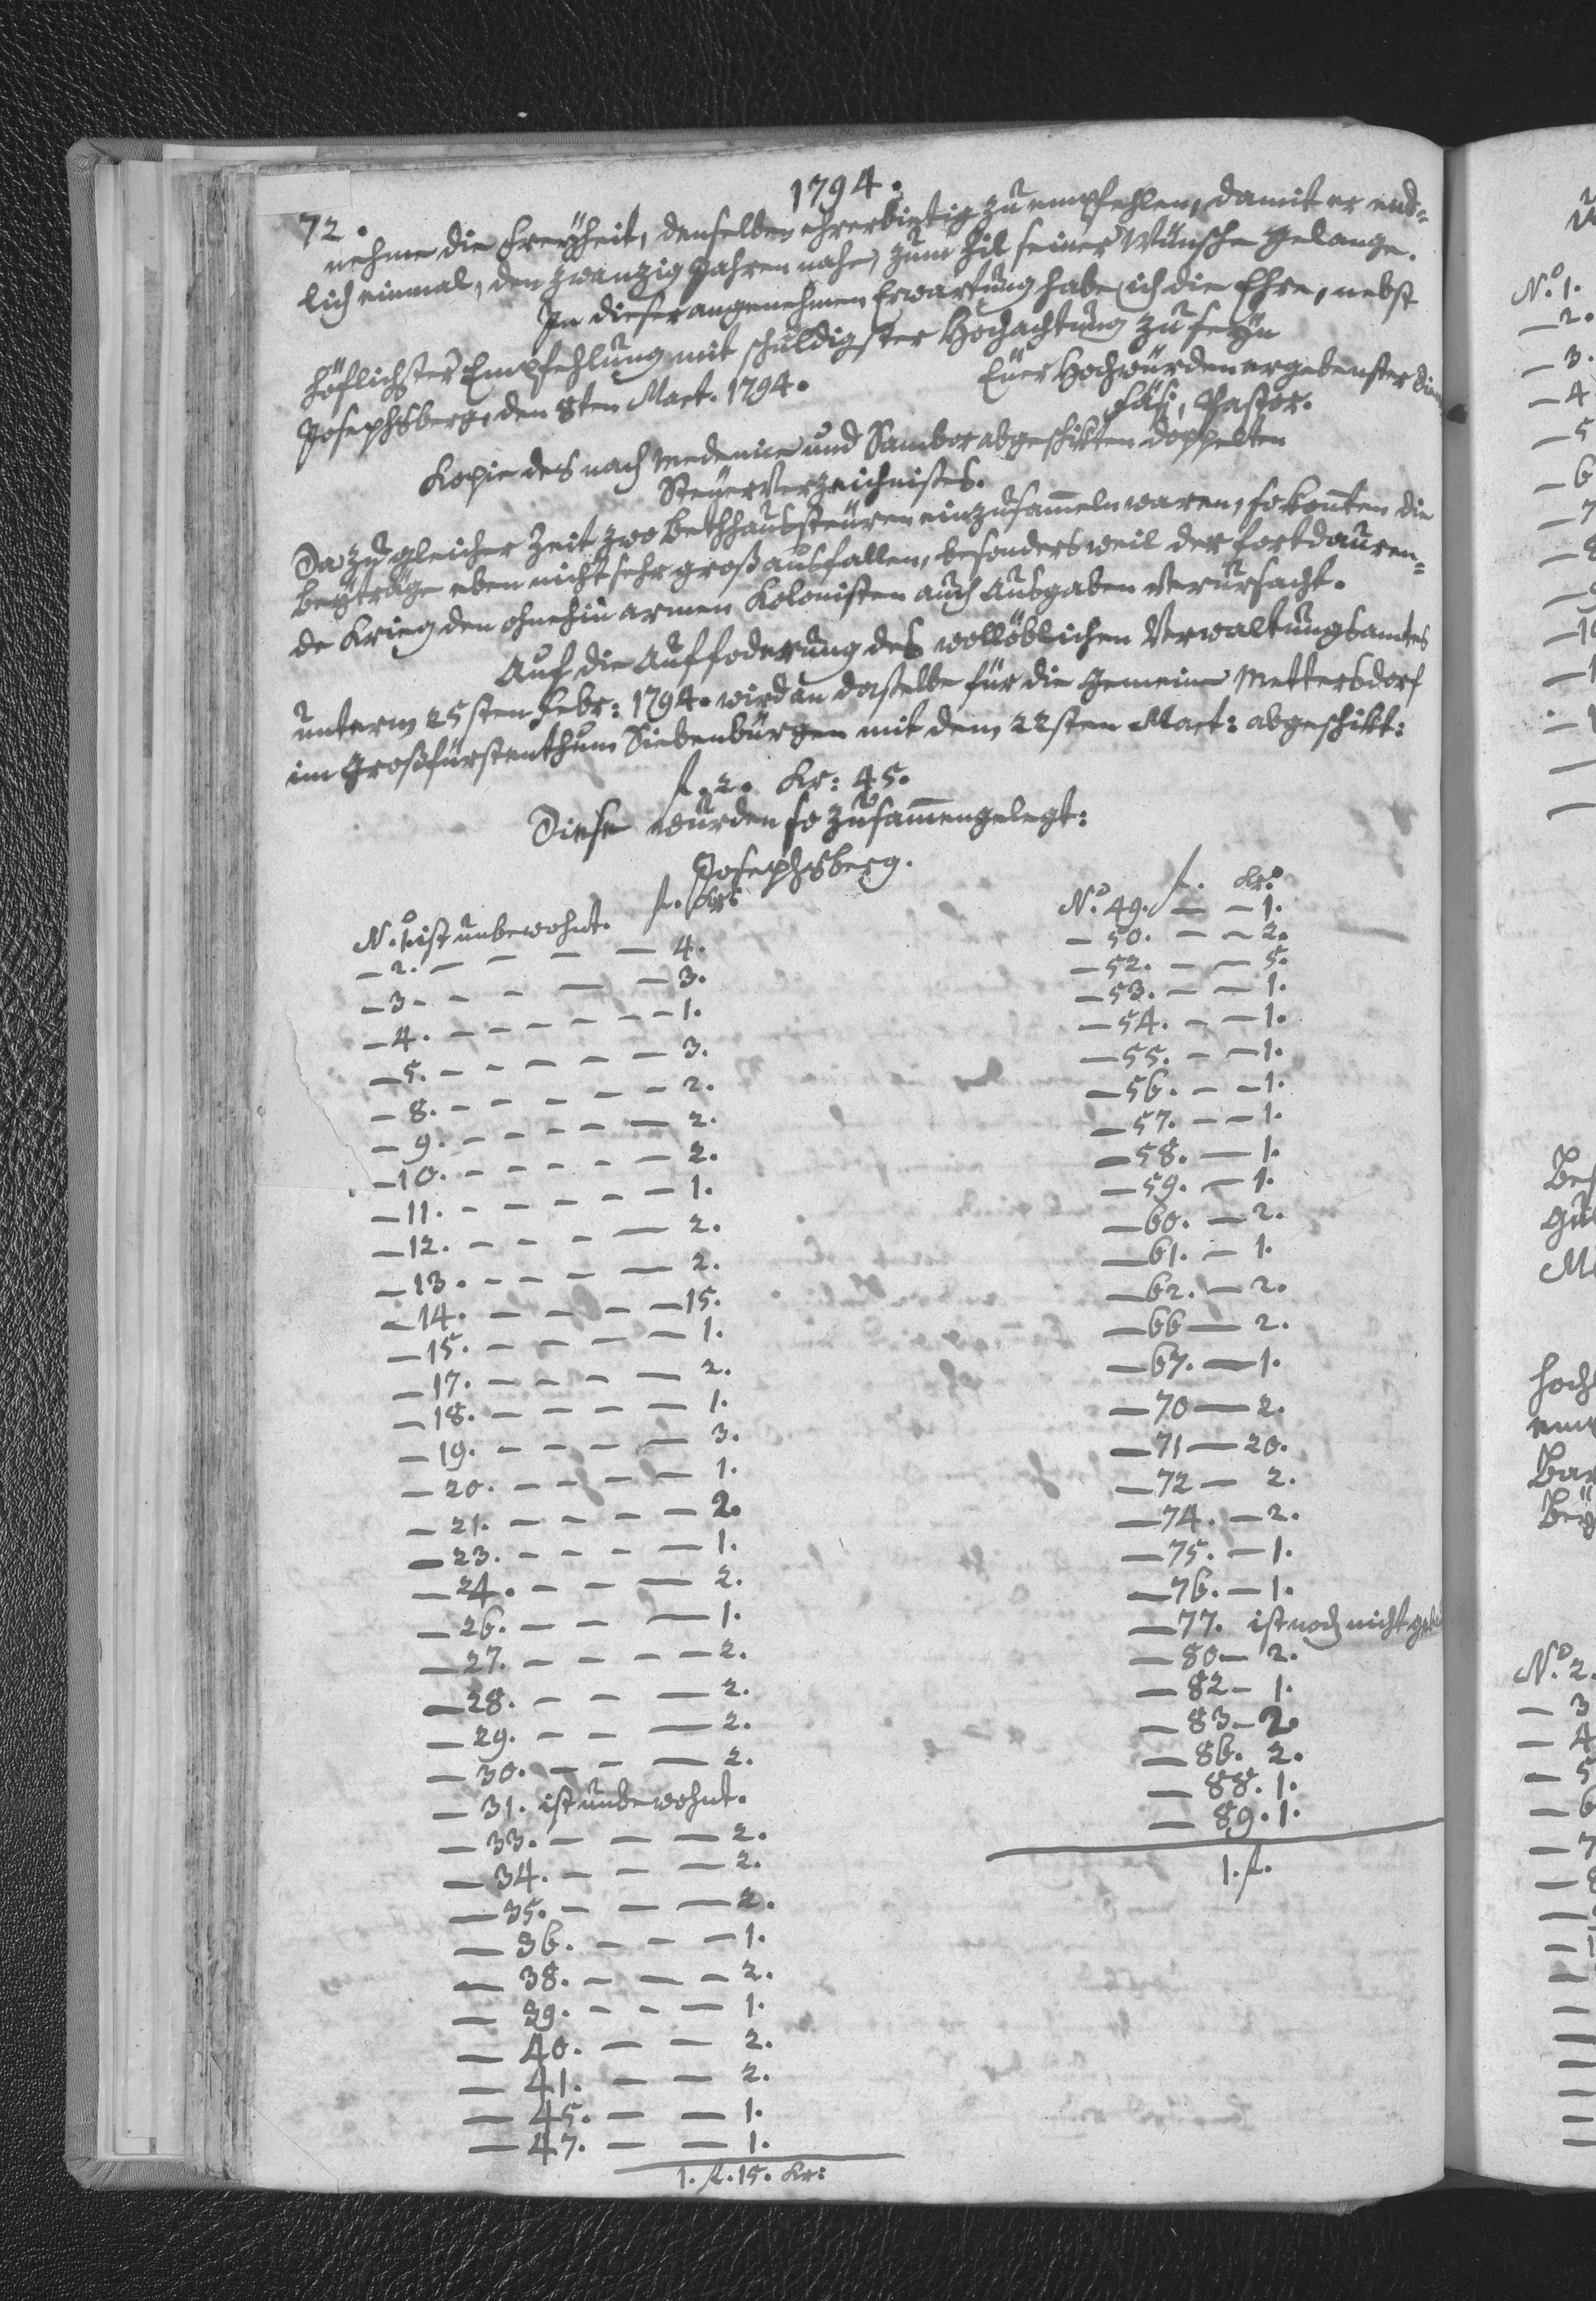 1794.
72.
nehme die Freyheit, denselben ehrerbietig zu empfehlen, damit er end-
lich einmal, den zwanzig Jahren nahe, zum Zil seiner Wünsche gelange.
In dieser angenehmen Erwartung habe ich die Ehre, nebst
höflichster Empfehlung mit schuldigster Hochachtung zu seyn
Euer Hochwürden ergebenster
Josephsberg, den 8ten Mart. 1794.
Pastor.
Kopie des nach Medenice und Sambor abgeschikten doppelten
Steuerverzeichnisses.
Da zu gleicher Zeit zwo Bethhaussteuren einzusam̅eln waren, so kon̅ten die
Beyträge eben nicht sehr groß ausfallen, besonders weil der fortdauren-
de Krieg den ohnehin armen Kolonisten auch Ausgaben verursacht.
Auf die Auffoderung des wollöblichen Verwaltungsamtes
unterm 25sten Febr: 1794. wird an dasselbe für die Gemeine Mettersdorf
im Großfürstenthum Siebenbürgen mit dem 22sten Mart: abgeschikt:
f. 2. Kr: 45.
Diese wurden so zusam̅engelegt:
Josephsberg.
f. Kr:
No. 1. ist unbewohnt.
— 2. — — — — — 4.
— 3. — — — — — 3.
— 4. — — — — — — 1.
— 5. — — — — — 3.
— 8. — — — — — 2.
— 9. — — — — — 2.
— 10. — — — — — 2.
— 11. — — — — — 1.
— 12. — — — — 2.
— 13. — — — — 2.
— 14. — — — — 15.
— 15. — — — — — 1.
— 17. — — — — — 2.
— 18. — — — — — 1.
— 19. — — — — — 3.
— 20. — — — — — 1.
— 21. — — — — — 2.
— 23. — — — — 1.
— 24. — — — 2.
— 26. — — — 1.
— 27. — — — — 2.
— 28. — — — 2.
— 29. — — — 2.
— 30. — — — 2.
— 31. ist unbewohnt.
— 33. — — — 2.
— 34. — — — 2.
— 35. — — — 2.
— 36. — — — 1.
— 38. — — — 2.
— 39. — — — 1.
— 40. — — 2.
— 41. — — 2.
— 45. — — 1.
— 47. — — 1.
1. f. 15. Kr:
f. Kr:
No. 49. — — 1.
— 50. — — 2.
— 52. — — 5.
— 53. — — 1.
— 54. — — 1.
— 55. — — 1.
— 56. — — 1.
— 57. — — 1.
— 58. — 1.
— 59. — 1.
— 60. — 2.
— 61. — 1.
— 62. — 2.
— 66 — 2.
— 67. — 1.
— 70 — 2.
— 71 — 20.
— 72 — 2.
— 74. — 2.
— 75. — 1.
— 76. — 1.
— 77. ist noch nicht
— 80 — 2.
— 82 — 1.
— 83. — 2.
— 86. 2.
— 88. 1.
— 89. 1.
1. f.
No. 1.
— 2.
— 3.
— 4
— 5
— 6
— 7
No. 2.
— 3
— 4
— 5
— 6
— 7